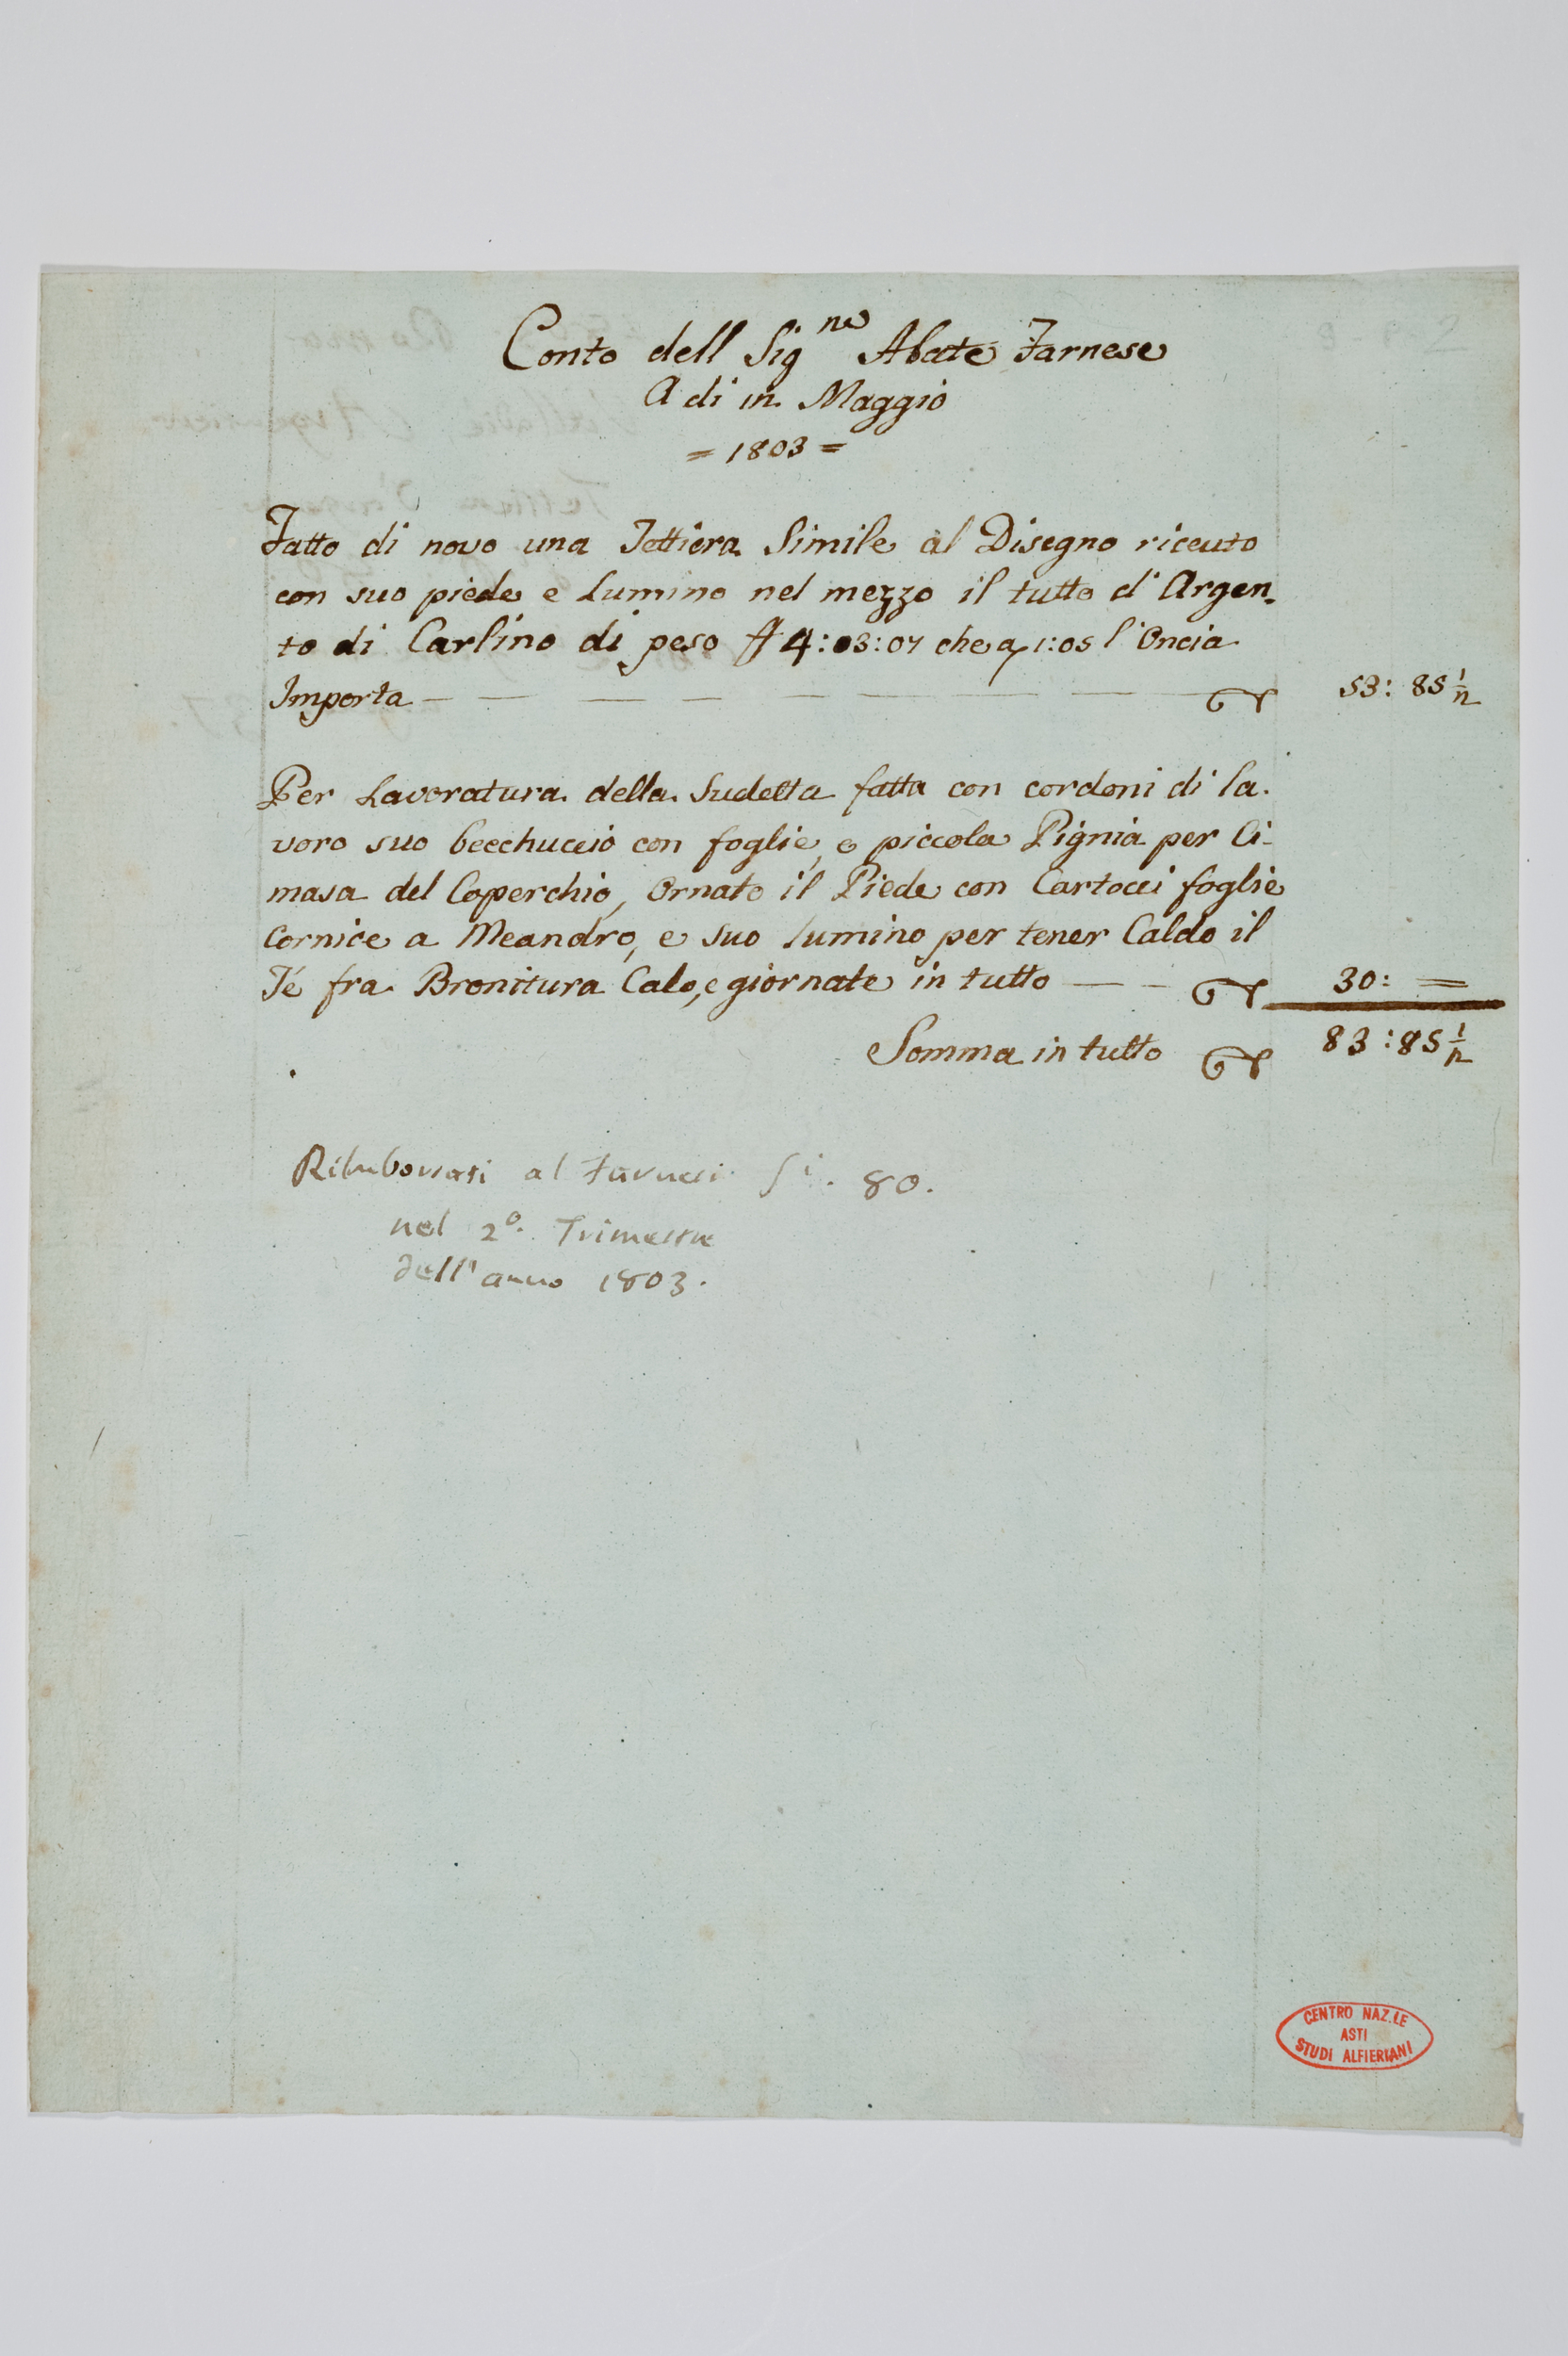 Conto dell Sig.ne Abate Farnese
A di in Maggio
= 1803 =
Fatto di novo una Tettiera Simile al Disegno riceuto
con suo piede e Lumino nel mezzo il tutto d'Argen-
to di Carlino di peso ℔ 4:03:07 che a 1:05 l'Oncia
Importa 53: 85 1/2
Per Lavoratura della Sudetta fatta con cordoni di la-
voro suo becchuccio con foglie, e piccola Pignia per Ci-
masa del Coperchio, Ornato il Piede con Cartocci foglie
Cornice a Meandro, e suo lumino per tener Caldo il
Té fra Bronitura Calo, e giornate in tutto 30: =
Somma in tutto 83:85 1/2
Rimborsati al Farnesi 80.
nel 2º. Trimestre
dell'anno 1803.
CENTRO NAZ.LE
ASTI
STUDI ALFIERIANI